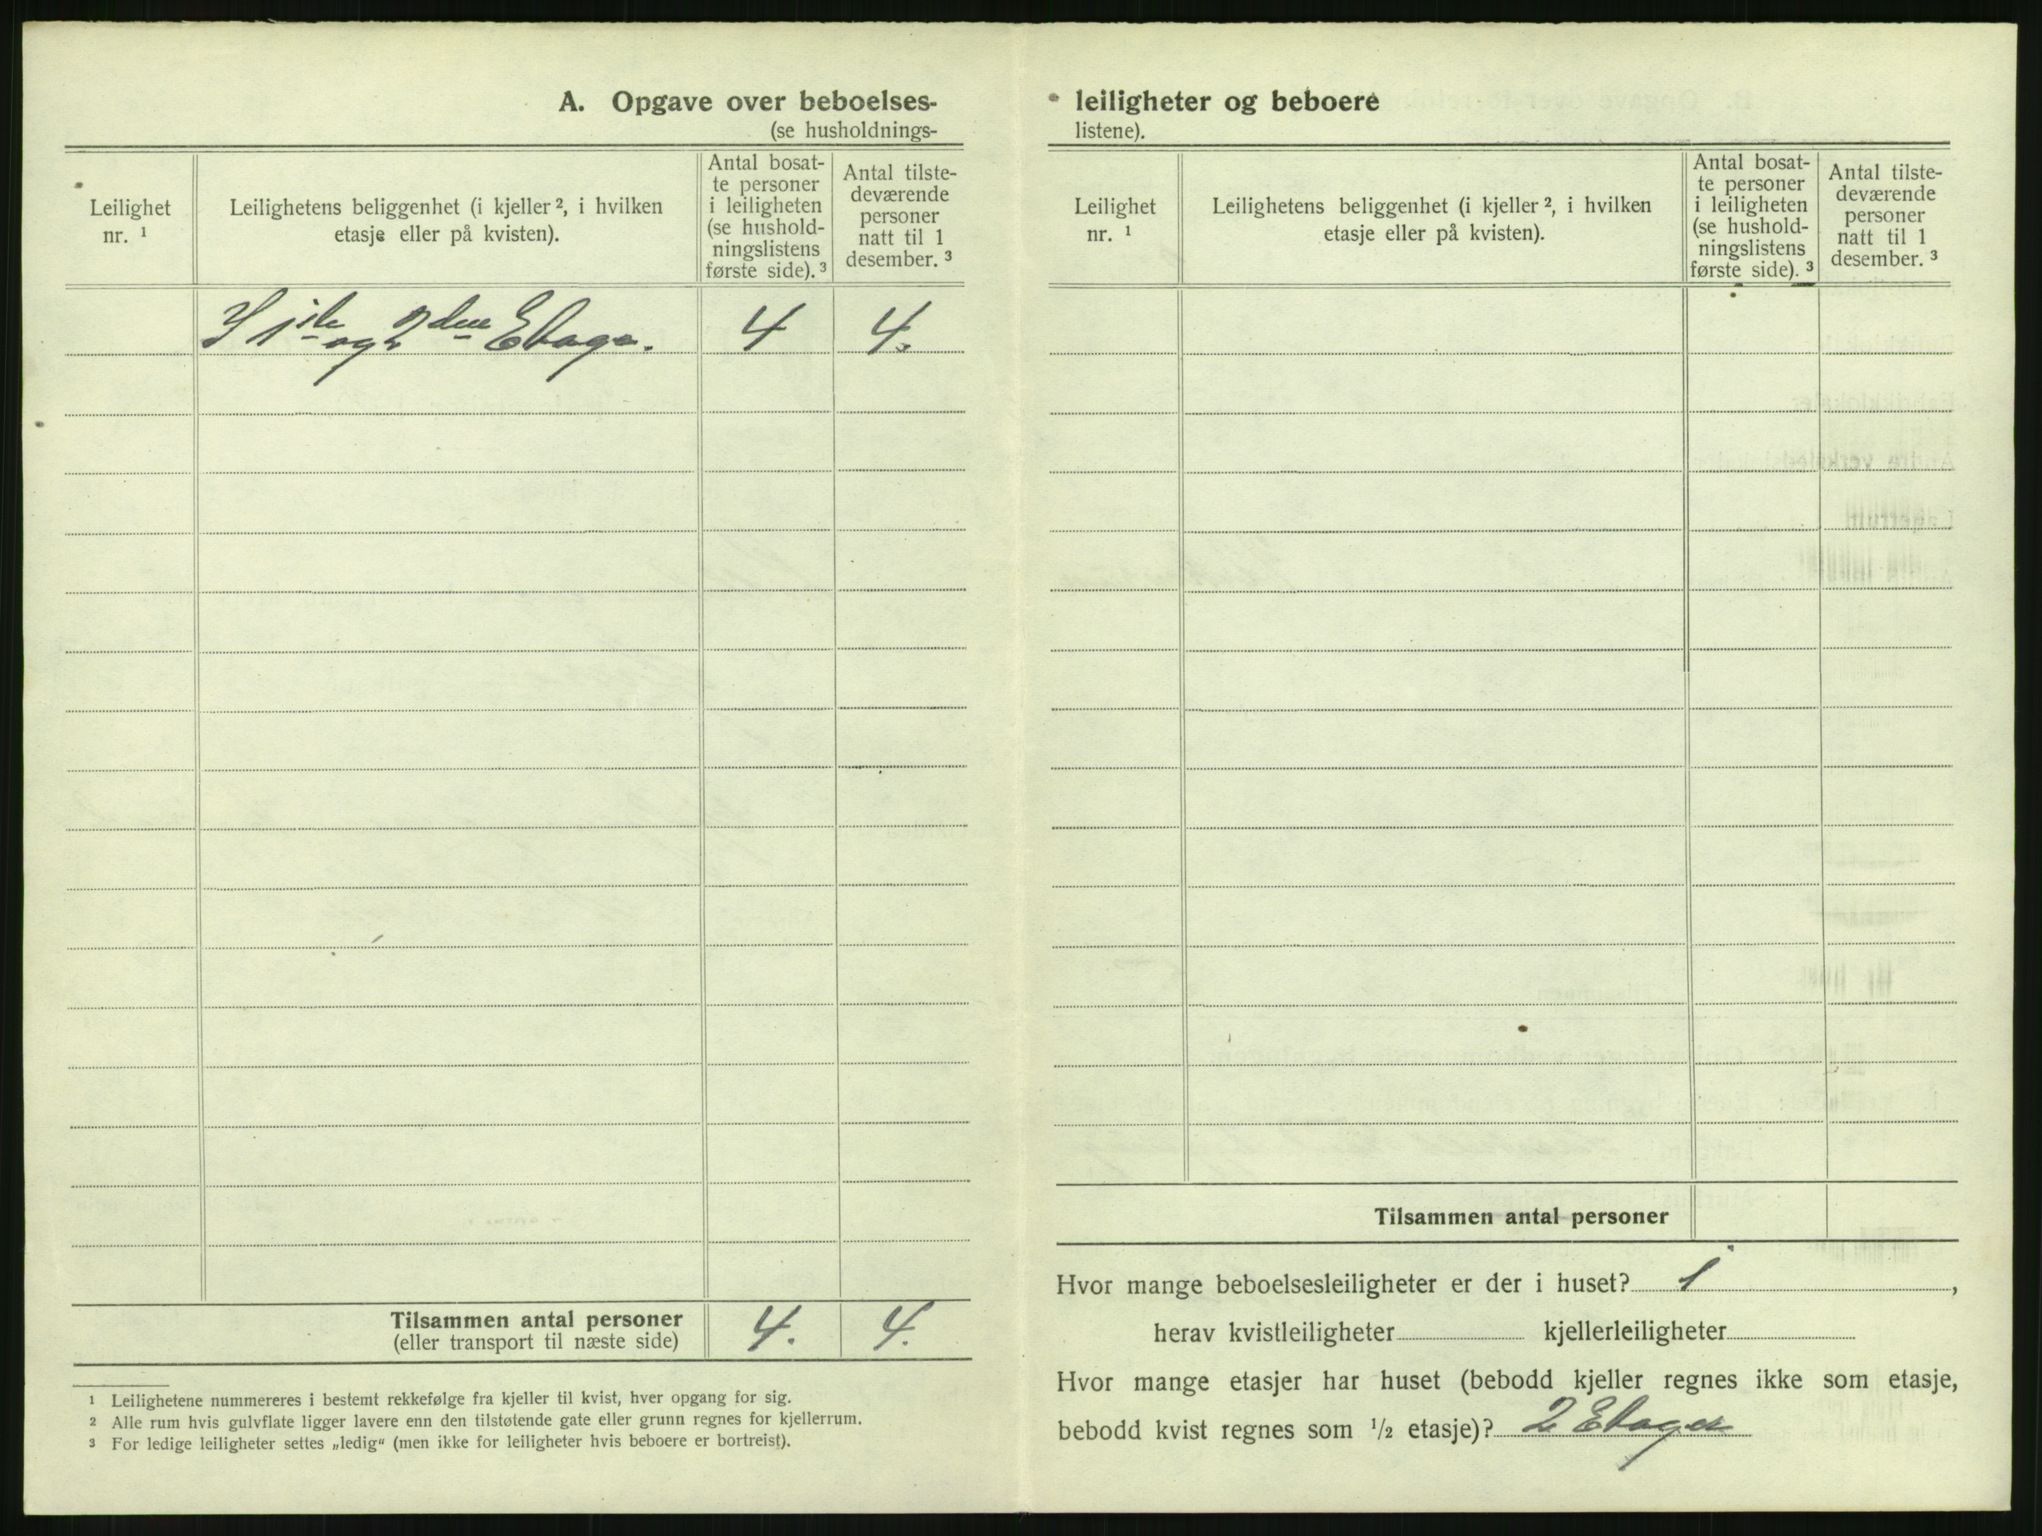 A. Opgave over beboelses-
(se husholdnings-
Leilighet
nr. ¹
Leilighetens beliggenhet (i kjeller ², i hvilken
etasje eller på kvisten).
Antal bosat-
te personer
i leiligheten
(se hushold-
ningslistens
første side). ³
Antal tilste-
deværende
personer
natt til 1
desember. ³
I 1ste og 2den Etage. 4 4.
Tilsammen antal personer 4. 4.
(eller transport til næste side)
¹ Leilighetene nummereres i bestemt rekkefølge fra kjeller til kvist, hver opgang for sig.
² Alle rum hvis gulvflate ligger lavere enn den tilstøtende gate eller grunn regnes for kjellerrum.
³ For ledige leiligheter settes „ledig“ (men ikke for leiligheter hvis beboere er bortreist).
leiligheter og beboere
listene).
Leilighet
nr. ¹
Leilighetens beliggenhet (i kjeller ², i hvilken
etasje eller på kvisten).
Antal bosat-
te personer
i leiligheten
(se hushold-
ningslistens
første side). ³
Antal tilste-
deværende
personer
natt til 1
desember. ³
Tilsammen antal personer
Hvor mange beboelsesleiligheter er der i huset? 1,
herav kvistleiligheter kjellerleiligheter
Hvor mange etasjer har huset (bebodd kjeller regnes ikke som etasje,
bebodd kvist regnes som ½ etasje)? 2 Etager